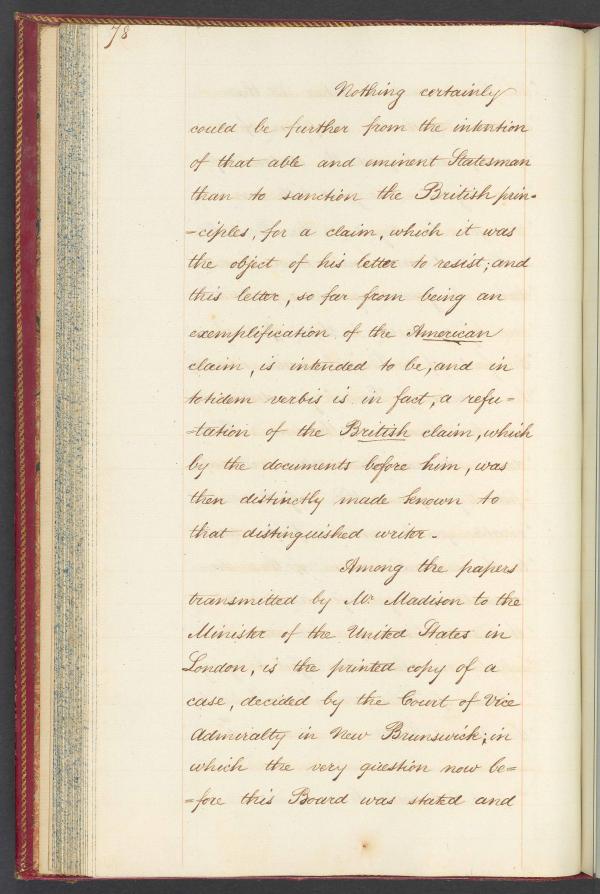 78
Nothing certainly
could be further from the intention
of that able and eminent Statesman
than to sanction the British prin-
-ciples, for a claim, which it was
the object of his letter to resist; and
this letter, so far from being an
exemplification of the American
claim, is intended to be, and in
totidem verbis is in fact, a refu-
-tation of the British claim, which
by the documents before him, was
then distinctly made known to
that distinguished writer.
Among the papers
transmitted by Mr. Madison to the
Minister of the United States in
London, is the printed copy of a
case, decided by the Court of Vice
Admiralty in New Brunswick; in
which the very question now be=
=fore this Board was stated and